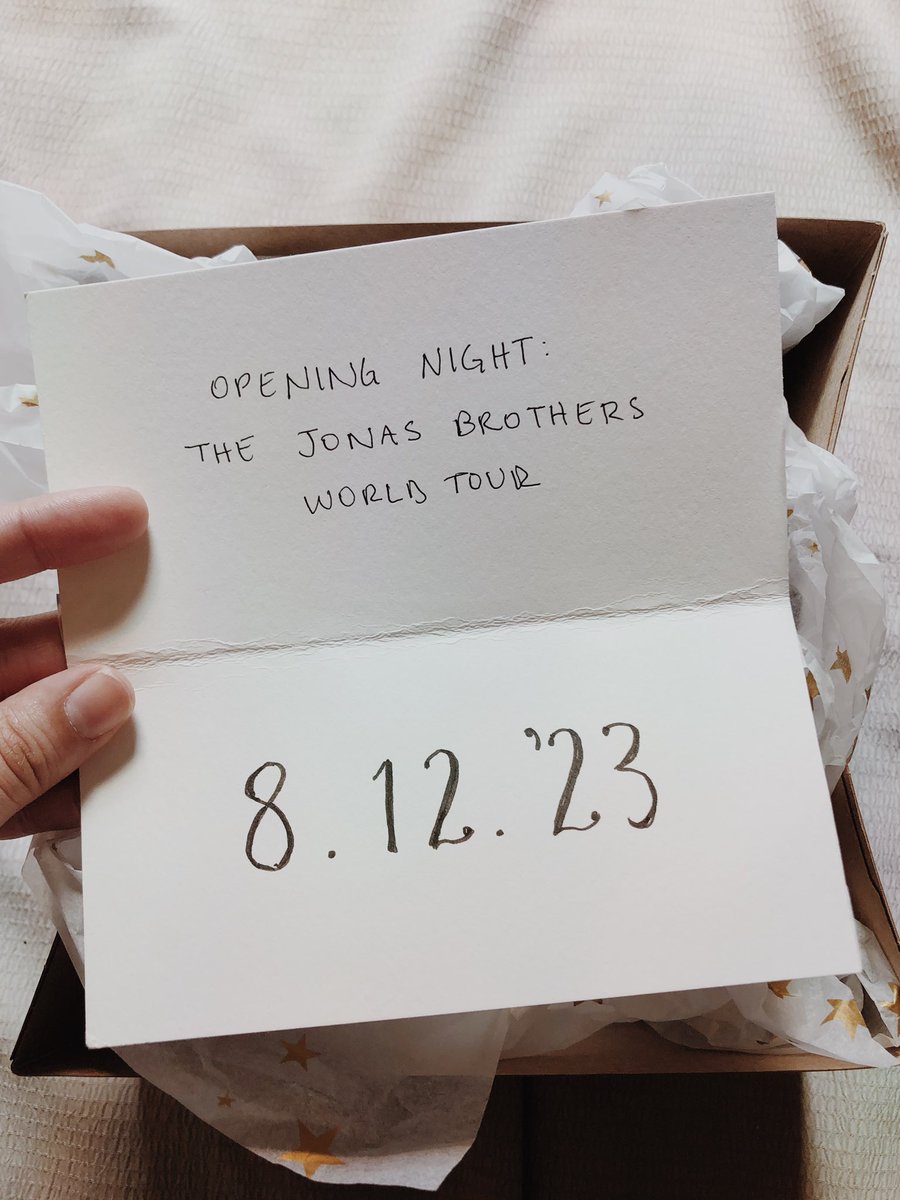 OPENING NIGHT:
THE JONAS BROTHERS
WORLD TOUR
8.12.'23